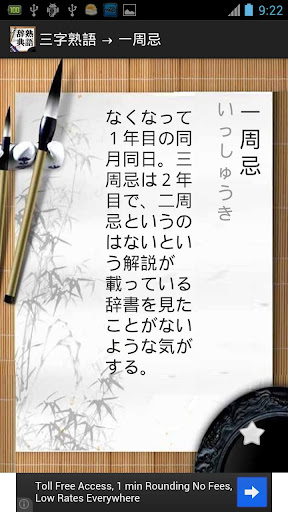 100
9:22
熟語
辞典
三字熟語 → 一周忌
一周忌
いっしゅうき
なくなって
１年目の同
月同日。三
周忌は２年
目で、二周
忌というの
はないとい
う解説が
載っている
辞書を見た
ことがない
ような気が
する。
Toll Free Access, 1 min Rounding No Fees,
Low Rates Everywhere